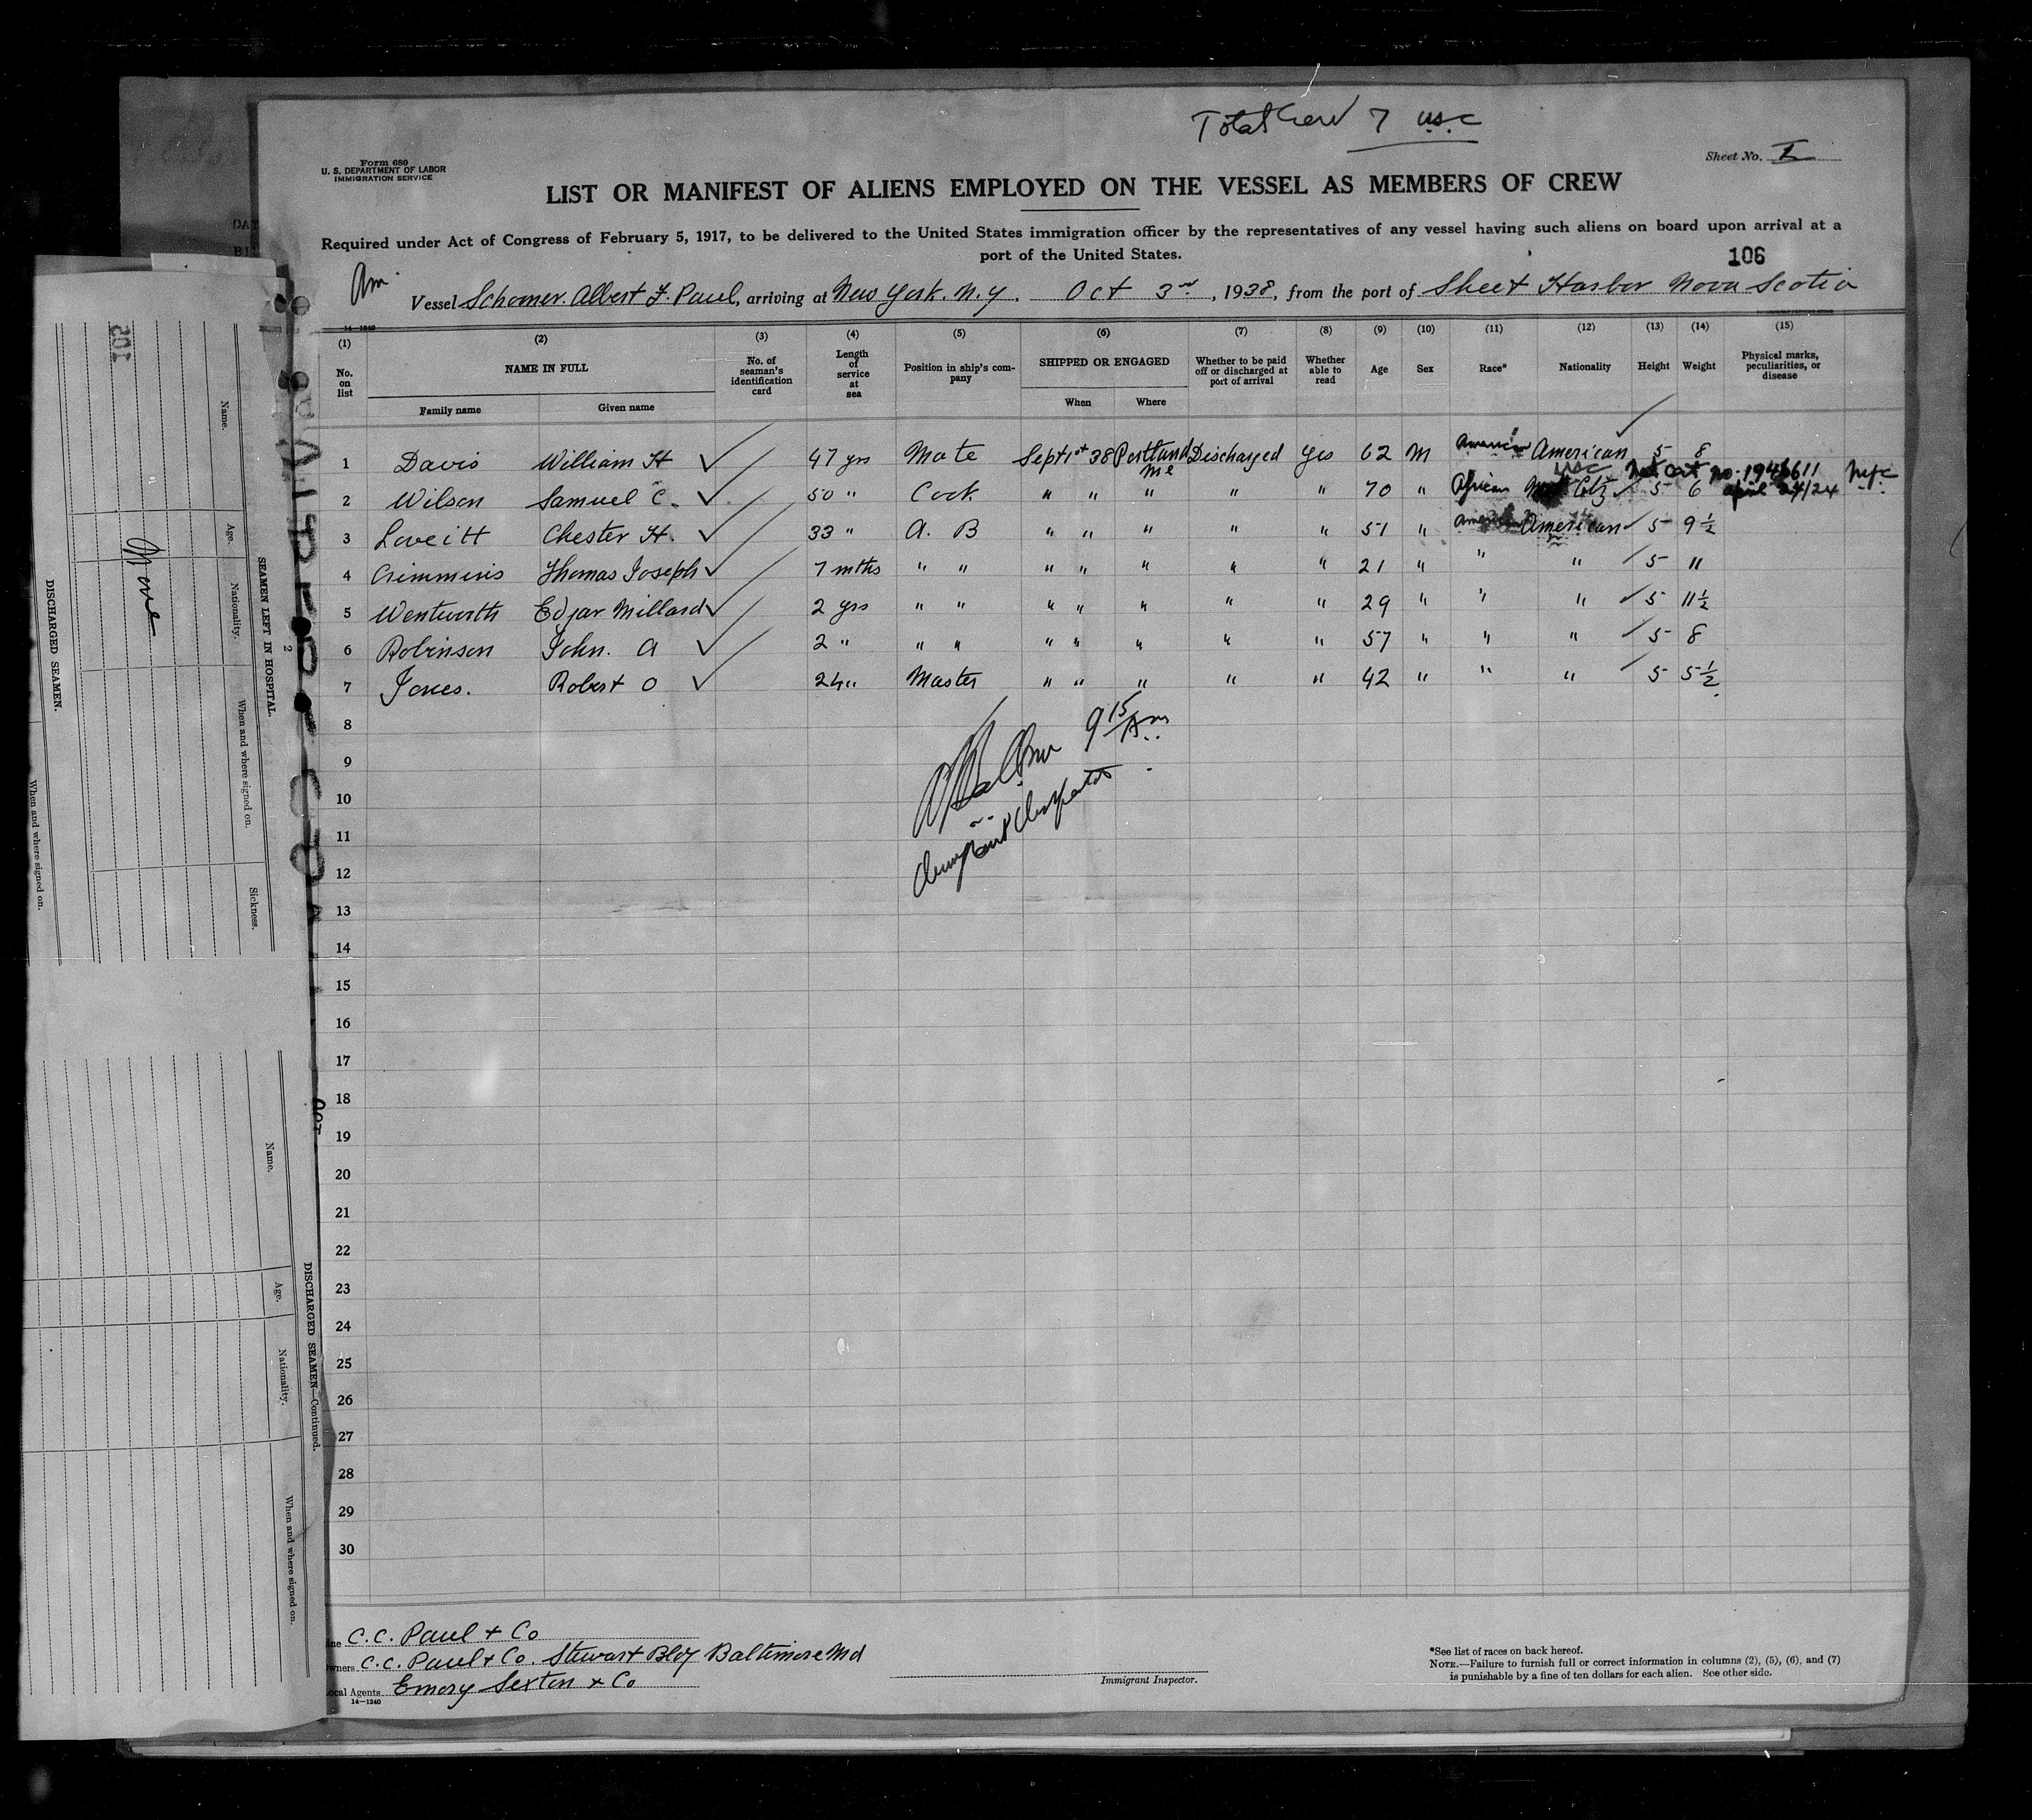 Total Crew 7 U.S.C
Form 680
U. S. DEPARTMENT OF LABOR
IMMIGRATION SERVICE
Sheet No. I
LIST OR MANIFEST OF ALIENS EMPLOYED ON THE VESSEL AS MEMBERS OF CREW
Required under Act of Congress of February 5, 1917, to be delivered to the United States immigration officer by the representatives of any vessel having such aliens on board upon arrival at a
port of the United States.
106
Am
Vessel Schooner Albert F. Paul, arriving at New York. N.Y. Oct 3rd, 1938, from the port of Sheet Harbor Nova Scotia
14-1240
(1) (2) (3) (4) (5) (6) (7) (8) (9) (10) (11) (12) (13) (14) (15)
No. on list NAME IN FULL Family name Given name No. of seaman's identification card Length of service at sea Position in ship's company SHIPPED OR ENGAGED When Where Whether to be paid off or discharged at port of arrival Whether able to read Age Sex Race* Nationality Height Weight Physical marks, peculiarities, or disease
1 Davis William H ✓ 47 yrs Mate Sept 1st 38 Portland Me Discharged Yes 62 M American American 5 8
USC Nat Cert no. 1946611
2 Wilson Samuel C. ✓ 50 " Cook " " " " " 70 " African Citz ✓ 5 6 April 24/24
3 Loveitt Chester H. ✓ 33 " A. B " " " " " 51 " American American ✓ 5 9½
4 Crimmins Thomas Joseph ✓ 7 mths " " " " " " " 21 " " " ✓ 5 11
5 Wentworth Edgar Millard ✓ 2 yrs " " " " " " " 29 " " " ✓ 5 11½
6 Robinson John. A ✓ 2 " " " " " " " " 57 " " " ✓ 5 8
7 Jones. Robert O ✓ 24 " Master " " " " " 42 " " " ✓ 5 5½
8
9 15 Am
9
10
11
12
13
14
15
16
17
18
19
20
21
22
23
24
25
26
27
28
29
30
C.C. Paul + Co
Owners C.C. Paul + Co. Stewart Bldg Baltimore Md
Local Agents Emory Sexton + Co
14-1240
Immigrant Inspector.
*See list of races on back hereof.
NOTE.—Failure to furnish full or correct information in columns (2), (5), (6), and (7)
is punishable by a fine of ten dollars for each alien. See other side.
105
None
DISCHARGED SEAMEN.
When and where signed on.
SEAMEN LEFT IN HOSPITAL.
Name.
Age.
Nationality.
When and where signed on.
Sickness.
2
DISCHARGED SEAMEN—Continued.
Name.
Age.
Nationality.
When and where signed on.